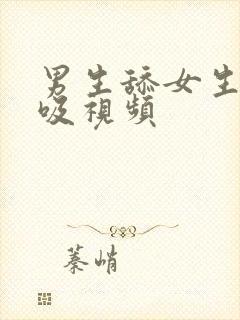 男生舔女生
吸視頻
蓁峭